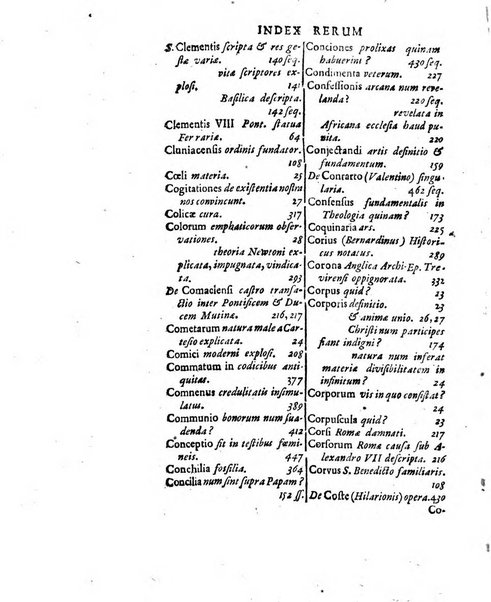 INDEX RERUM
S. Clementis scripta & res ge-
stæ variæ. 140 seq.
vitæ scriptores ex-
plosi. 141
Basilica descripta.
142 seq.
Clementis VIII Pont. statua
Ferrariæ. 64
Cluniacensis ordinis fundator.
108
Cœli materia. 25
Cogitationes de existentia nostra
nos convincunt. 27
Colicæ cura. 317
Colorum emphaticorum obser-
vationes. 28
theoria Newtoni ex-
plicata, impugnata, vindica-
ta. 293
De Comaclensi castro transa-
ctio inter Pontificem & Du-
cem Mutinæ. 216, 217
Cometarum natura male a Car-
tesio explicata. 24
Comici moderni explosi. 208
Commatum in codicibus anti-
quitas. 377
Comnenus credulitatis insimu-
latus. 389
Communio bonorum num sua-
denda? 412
Conceptio sit in testibus fœmi-
neis. 447
Conchilia fossilia. 364
Concilia num sint supra Papam?
152 ss.
Conciones prolixas quinam
habuerint? 430 seq.
Condimenta veterum. 227
Confessionis arcana num reve-
landa? 220 seq.
revelata in
Africana ecclesia haud pu-
nita. 220
Conjectandi artis definitio &
fundamentum. 159
De Contarto (Valentino) singu-
laria. 462 seq.
Consensus fundamentalis in
Theologia quinam? 173
Coquinaria ars. 225
Corius (Bernardinus) Histori-
cus notatus. 289
Corona Anglica Archi-Ep. Tre-
virensi oppignorata. 332
Corpus quid? 23
Corporis definitio. 23
& animæ unio. 26, 27
Christi num participes
fiant indigni? 174
natura num inferat
materiæ divisibilitatem in
infinitum? 24
Corporum vis in quo consistat?
24
Corpuscula quid? 23
Corsi Romæ damnati. 217
Corsorum Romæ causa sub A-
lexandro VII descripta. 216
Corvus S. Benedicto familiaris.
108
De Coste (Hilarionis) opera. 430
Co-